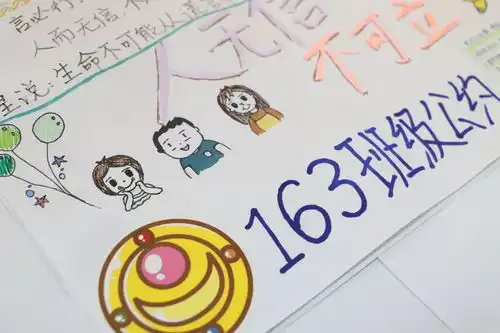 言必行
人而无信,不
是说:生命不可能从谎言
人无信
不可立
163班级公约